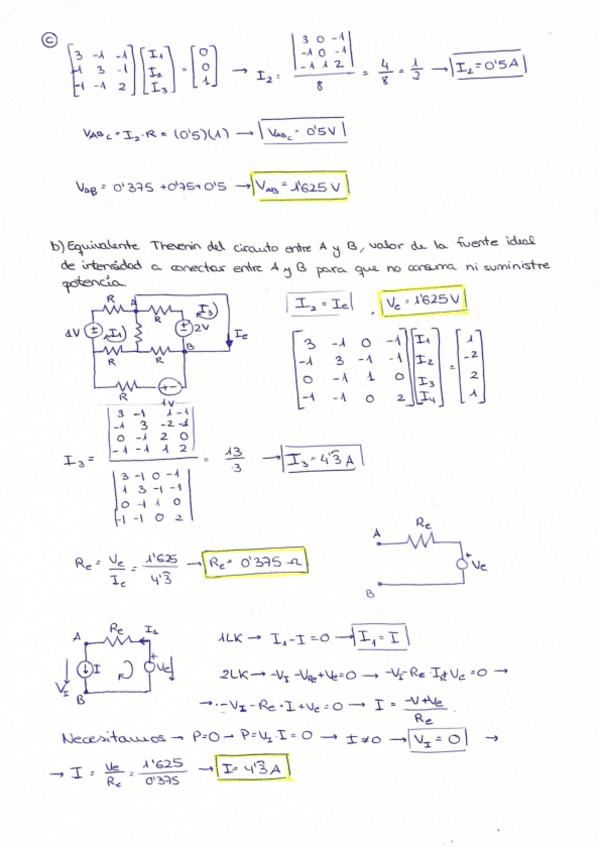 c
[3 -1 -1; -1 3 -1; -1 -1 2] [I1; I2; I3] = [0; 0; 1] → I2 = |3 0 -1; -1 0 -1; -1 1 2| / 8 = 4/8 = 1/2 → I2 = 0'5 A
VABc = I2 · R = (0'5)(1) → VABc = 0'5V
VAB = 0'375 + 0'75 + 0'5 → VAB = 1'625 V
b) Equivalente Thevenin del circuito entre A y B, valor de la fuente ideal
de intensidad a conectar entre A y B para que no consuma ni suministre
potencia.
R A R I3
1V I1 R 2V Ie
R R B
R 1V
I2 = Ie , Ve = 1'625 V
[3 -1 0 -1; -1 3 -1 -1; 0 -1 1 0; -1 -1 0 2] [I1; I2; I3; I4] = [1; -2; 2; 1]
I3 = |3 -1 1 -1; -1 3 -2 -1; 0 -1 2 0; -1 -1 1 2| / |3 -1 0 -1; 1 3 -1 -1; 0 -1 1 0; -1 -1 0 2| = 13/3 → I3 = 4'3 A
Re = Ve/Ie = 1'625/4'3 → Re = 0'375 Ω
A Re + Ve B
A Re I1 I + Ve VI B
1LK → I1 - I = 0 → I1 = I
2LK → -VI - VRe + Ve = 0 → -VI - Re · I1 + Ve = 0 →
→ -VI - Re · I + Ve = 0 → I = -V+Ve/Re
Necesitamos → P=0 → P = VI · I = 0 → I ≠ 0 → VI = 0 →
→ I = Ve/Re = 1'625/0'375 → I = 4'3 A